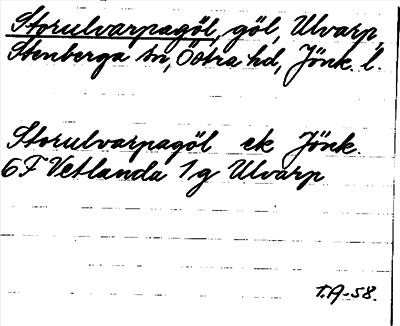 Storulvarpagöl, göl, Ulvarp
Stenberga sn, Östra hd, Jönk. l.
Storulvarpagöl ek Jönk.
6F Vetlanda 1g Ulvarp
T.A-58.